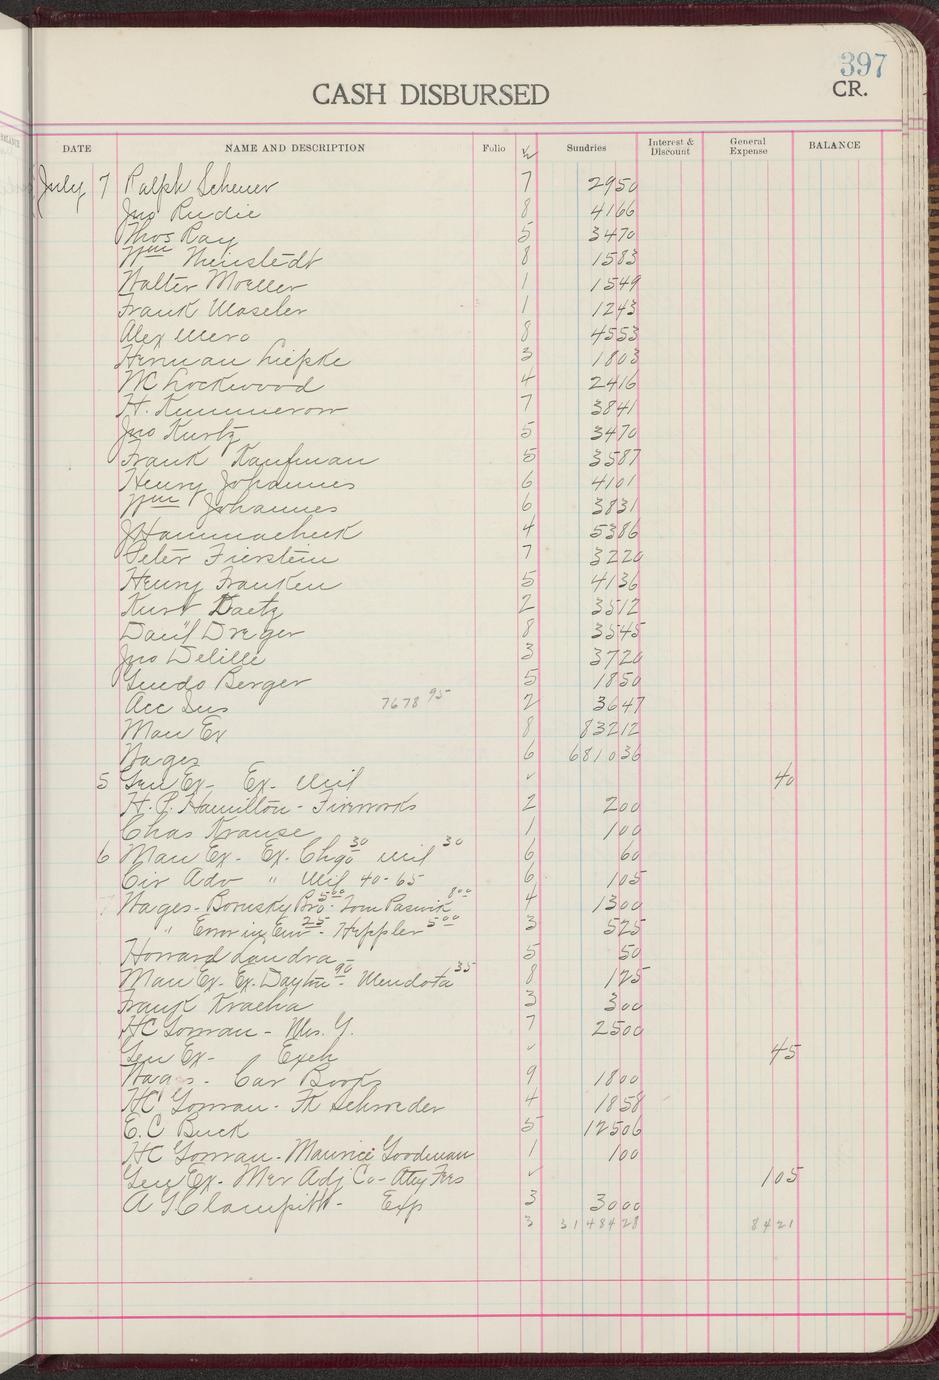 397
CASH DISBURSED
CR.
DATE NAME AND DESCRIPTION Folio Sundries Interest & Discount General Expense BALANCE
July 7 Ralph Scheuer 7 2950
Jno Rudie 8 4166
Thos Ray 5 3470
Wm Thinstedt 8 1583
Walter Moeller 1 1549
Frank Maseler 1 1243
Alex Mero 8 4553
Herman Liepke 3 1803
WC Lockwood 4 2416
H. Kummerow 7 3841
Jno Kurtz 5 3470
Frank Kaufman 5 3587
Henry Johannes 6 4101
Wm Johannes 6 3831
J Hammacheck 4 5386
Peter Fierstein 7 3220
Henry Franken 5 4136
Kurt Daetz 2 3512
Danl Dreger 8 3545
Jno Delille 3 3720
Guido Berger 5 1850
Acc Ins 7678 95 2 3647
Man Ex 8 83212
Wages 6 681036
5 Gen Ex - Ex. Mil ✓ 40
H.P. Hamilton - Fireworks 2 200
Chas Krause 1 100
6 Man Ex - Ex. Chgo 30 Mil 30 6 60
Cir Adv " Mil 40-65 6 105
Wages - Bornsky Bro 500 - Tom Paswik 800 4 1300
" Error in Env 25 - Heppler 500 3 525
Howard Landra - 5 50
Man Ex. Ex. Dayton 90 - Mendota 35 8 125
Frank Kracha 3 300
HC Gorman - Wis. Y. 7 2500
Gen Ex - Exch ✓ 45
Wages - Car Books 9 1800
HC Gorman - Fk Schroeder 4 1858
E.C Buck 5 12506
HC Gorman - Maurice Goodman 1 100
Gen Ex - Mer Adj Co - Atty Fees ✓ 105
A G Clampitt - Exp 3 3000
3 3148428 8421